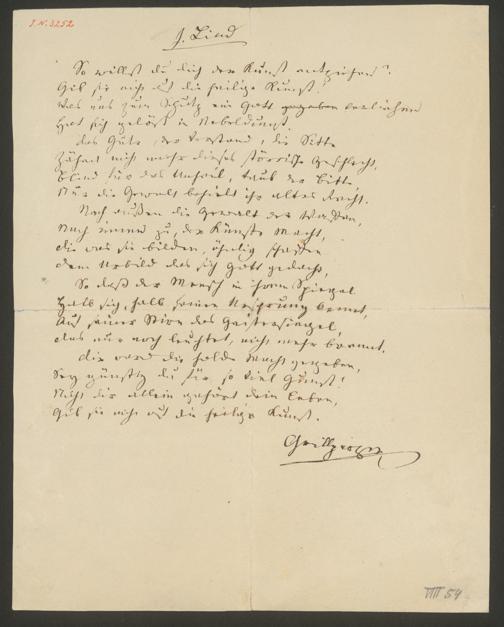 J. N. 3252
J. Lind
So willst du dich der Kunst entziehen?
Gib sie nicht auf die heilige Kunst.
Was uns zum Schutz ein Gott verliehen
Hat sich gelöst in Nebeldunst.
Das Gute, der Verstand, die Sitte
Zähmt nicht mehr dieses störrische Geschlecht,
Blind für das Unheil, taub der Bitte,
Nur die Gewalt behielt ihr altes Recht.
Nach außen die Gewalt der Waffen,
Nach innen zu, der Künste Macht,
die was sie bilden, ähnlich schaffen
dem Urbild das sich Gott gedacht,
So daß der Mensch in ihrem Spiegel
Halb sich, halb seinen Ursprung kennt,
Auf seiner Stirn das Geistersiegel,
das nur noch leuchtet, nicht mehr brennt.
dir ward die holde Macht gegeben,
Sey günstig du für so viel Gunst!
Nicht dir allein gehört dein Leben,
Gib sie nicht auf die heilige Kunst.
Grillparzer
VIII 54